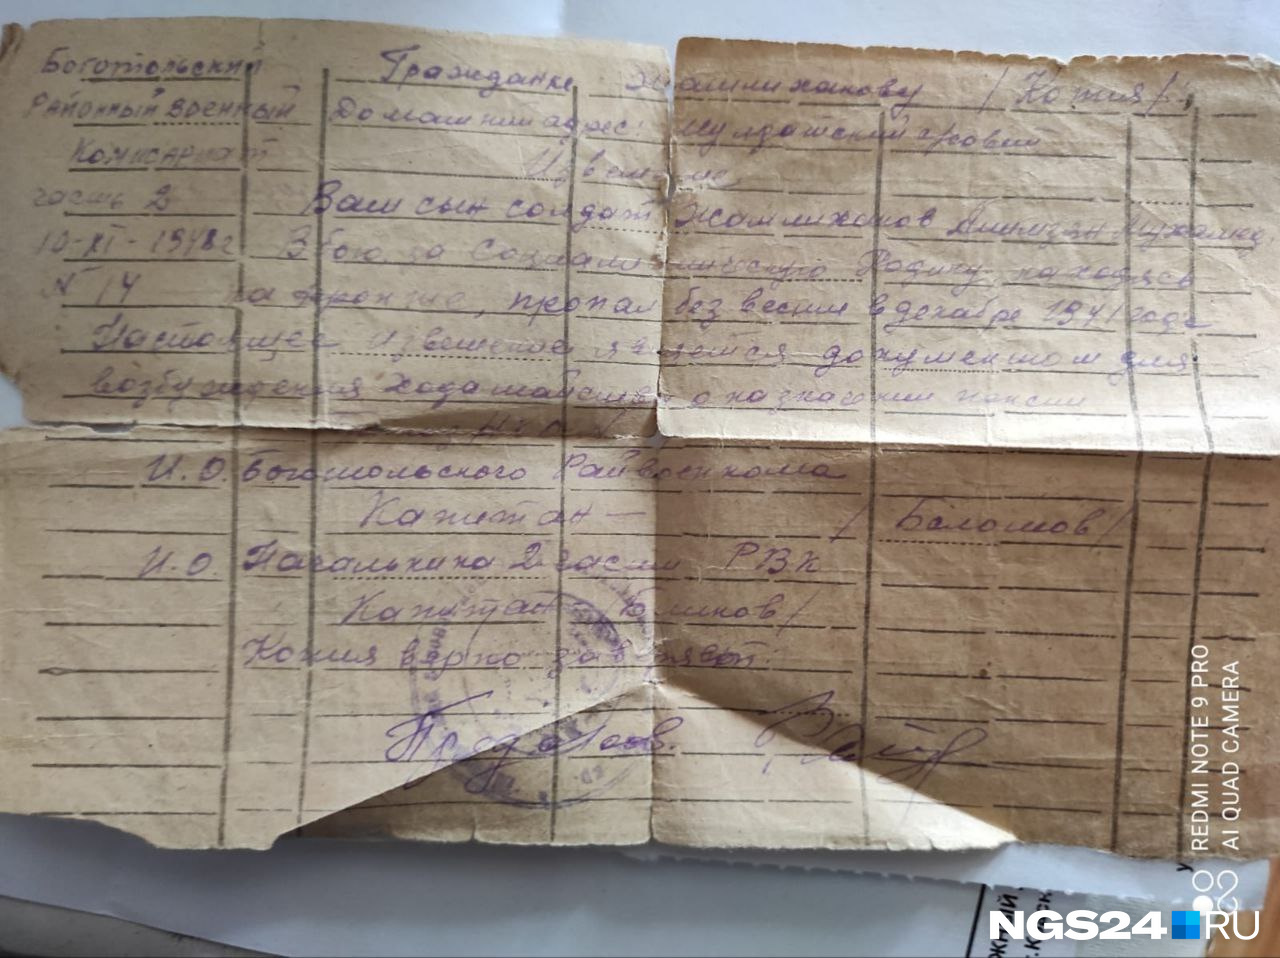 Боготольский Гражданке Жамлиханову /Копия/
Районный военный Домашний адрес
Комисариат Извещение
часть 2 Ваш сын солдат Жамлиханов Мухамед
10-XI-1948г В бою за Социалистическую Родину находясь
N 14 на фронте, пропал без вести в декабре 1941 года
Настоящее извещение является документом для
возбуждения ходатайства о назначении пенсии
И.О. Боготольского Райвоенкома
Капитан — / /
И.О Начальника 2 части РВК
Капитан /Блинов/
Копия верно
REDMI NOTE 9 PRO
AI QUAD CAMERA
NGS24.RU